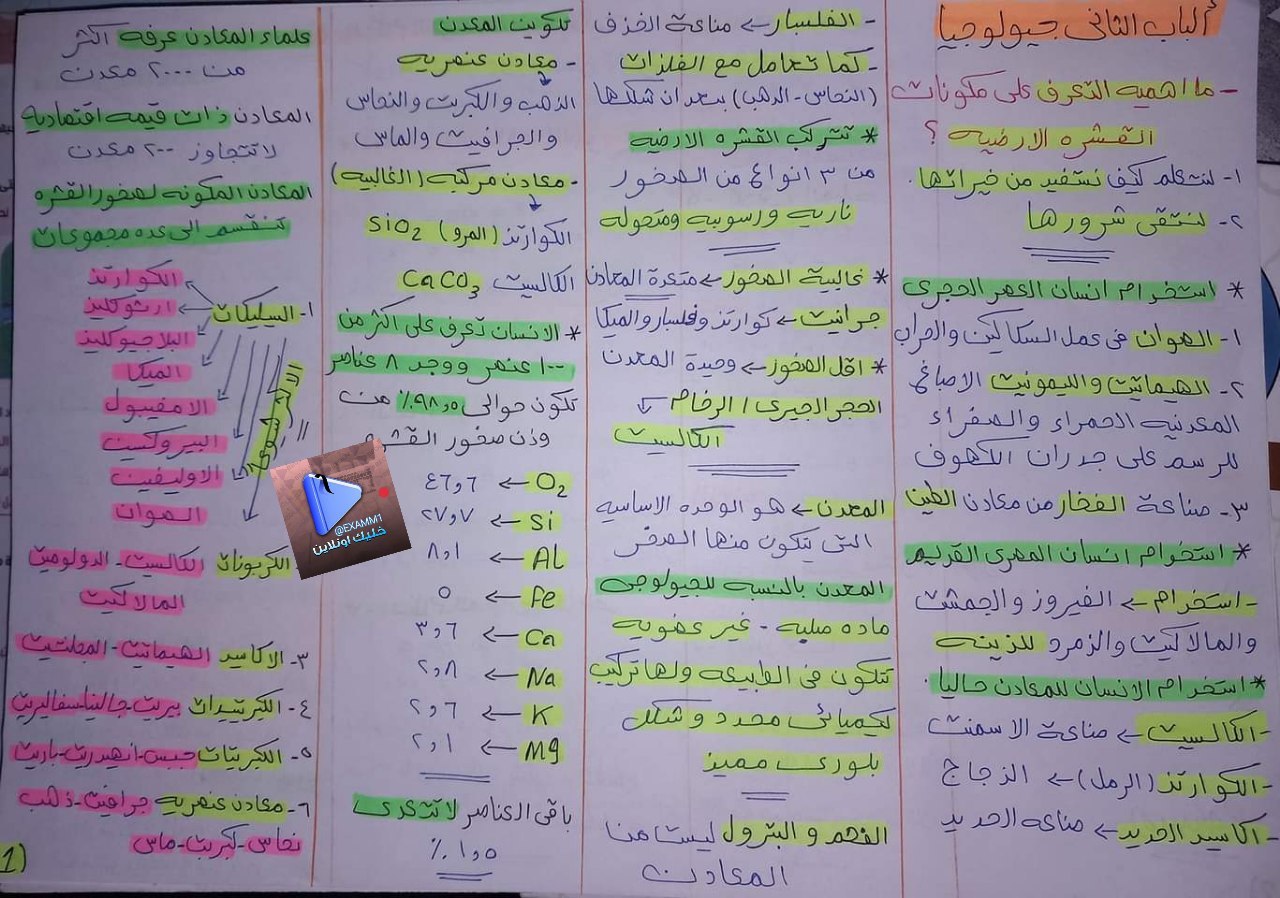 الباب الثاني جيولوجيا
- ما اهميه التعرف على مكونات
القشره الارضيه ؟
١- لنتعلم كيف نستفيد من خيراتها.
٢- لنتقى شرورها
* استخدام انسان العصر الحجرى
١- الصوان فى عمل السكاكين والحراب
٢- الهيماتيت والليمونيت الاصباغ
المعدنيه الحمراء والصفراء
للرسم على جدران الكهوف
٣- صناعة الفخار من معادن الطين
* استخدام انسان المصرى القديم
- استخدام ← الفيروز والجمشت
والمالاكيت والزمرد للزينه
* استخدام الانسان للمعادن حاليا
- الكالسيت ← صناعة الاسمنت
- الكوارتز (الرمل) ← الزجاج
- اكاسيد الحديد ← صناعه الحديد
- الفلسبار ← صناعة الخذف
- كما تعامل مع الفلزات
(النحاس - الدهب) بعد ان شكلها
* تتركب القشره الارضيه
من ٣ انواع من الصخور
ناريه ورسوبيه ومتحوله
* غالبية الصخور ← متعدة المعادن
جرانيت ← كوارتز وفلسبار والميكا
* اقل الصخور ← وحيدة المعدن
الحجر الجيرى / الرخام
الكالسيت
المعدن ← هو الوحده الاساسيه
التى يتكون منها الصخر
المعدن بالنسبه للجيولوجى
ماده صلبه - غير عضويه
تتكون فى الطبيعه ولها تركيب
كيميائى محدد وشكل
بلورى مميز
الفحم و البترول ليست من
المعادن
تكوين المعدن
- معادن عنصريه
الذهب والكبريت والنحاس
والجرافيت والماس
- معادن مركبه (الغالبيه)
الكوارتز (المرو) SiO2
الكالسيت CaCO3
* الانسان تعرف على اكثر من
١٠٠ عنصر ووجد ٨ عناصر
تكون حوالى ٩٨,٥٪ من
وزن صخور القشره
O2 ← ٤٦,٦
Si ← ٢٧,٧
AL ← ٨,١
Fe ← ٥
Ca ← ٣,٦
Na ← ٢,٨
K ← ٢,٦
Mg ← ٢,١
باقى العناصر لا تتعدى
١,٥ ٪
علماء المعادن عرفه اكثر
من ٢٠٠٠ معدن
المعادن ذات قيمه اقتصاديه
لا تتجاوز ٢٠٠ معدن
المعادن المكونه لصخور القشره
تنقسم الى عده مجموعات
١- السيليكات
الكوارتز
ارثوكليز
البلاجيوكليز
الميكا
الامفيبول
البيروكسين
الاوليفين
الصوان
الكربونات الكالسيت - الدولوميت
المالاكيت
٣- الاكاسيد الهيماتيت - المجنتيت
٤- الكبريتيدات بيريت - جالينا - سفاليريت
٥- الكبريتات جبس - انهيدريت - باريت
٦- معادن عنصريه جرافيت - ذهب
نحاس - كبريت - ماس
1)
@EXAMM1
خليك اونلاين